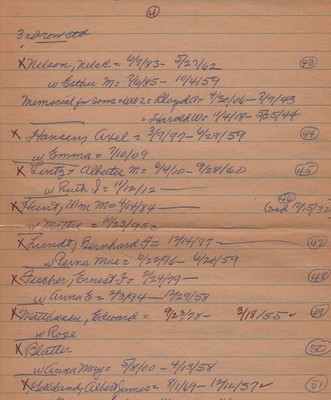 4
3rd row ctd
X Nelson, Nels C = 9/9/83 - 5/27/62 43
w Esther M = 7/6/85 - 10/4/59
Memorial for sons = WW2 = Lloyd A = 4/30/06 - 7/7/43
= Harold W = 11/4/18 - 5/25/44
X Hansen, Axel = 3/9/97 - 4/29/59 44
w Emma = 7/10/09
X Lintz = Alberta M = 6/4/10 - 9/28/60 45
w Ruth I = 11/12/12
X Flint, Wm M = 4/14/84 46
w Mattie = 10/23/95
X Bernhard F = 12/14/97 47
w Mae = 6/27/96 - 6/20/59
X Fischer, Ernest F = 2/24/79 48
w Anna E = 2/3/94 - 12/29/58
X Edward = 9/23/78 - 3/18/55 ✓ 49
w Rose
X Blatter 50
w Anna May = 5/8/00 - 4/13/58
X Albert James = 8/1/69 - 12/12/57 ✓ 51